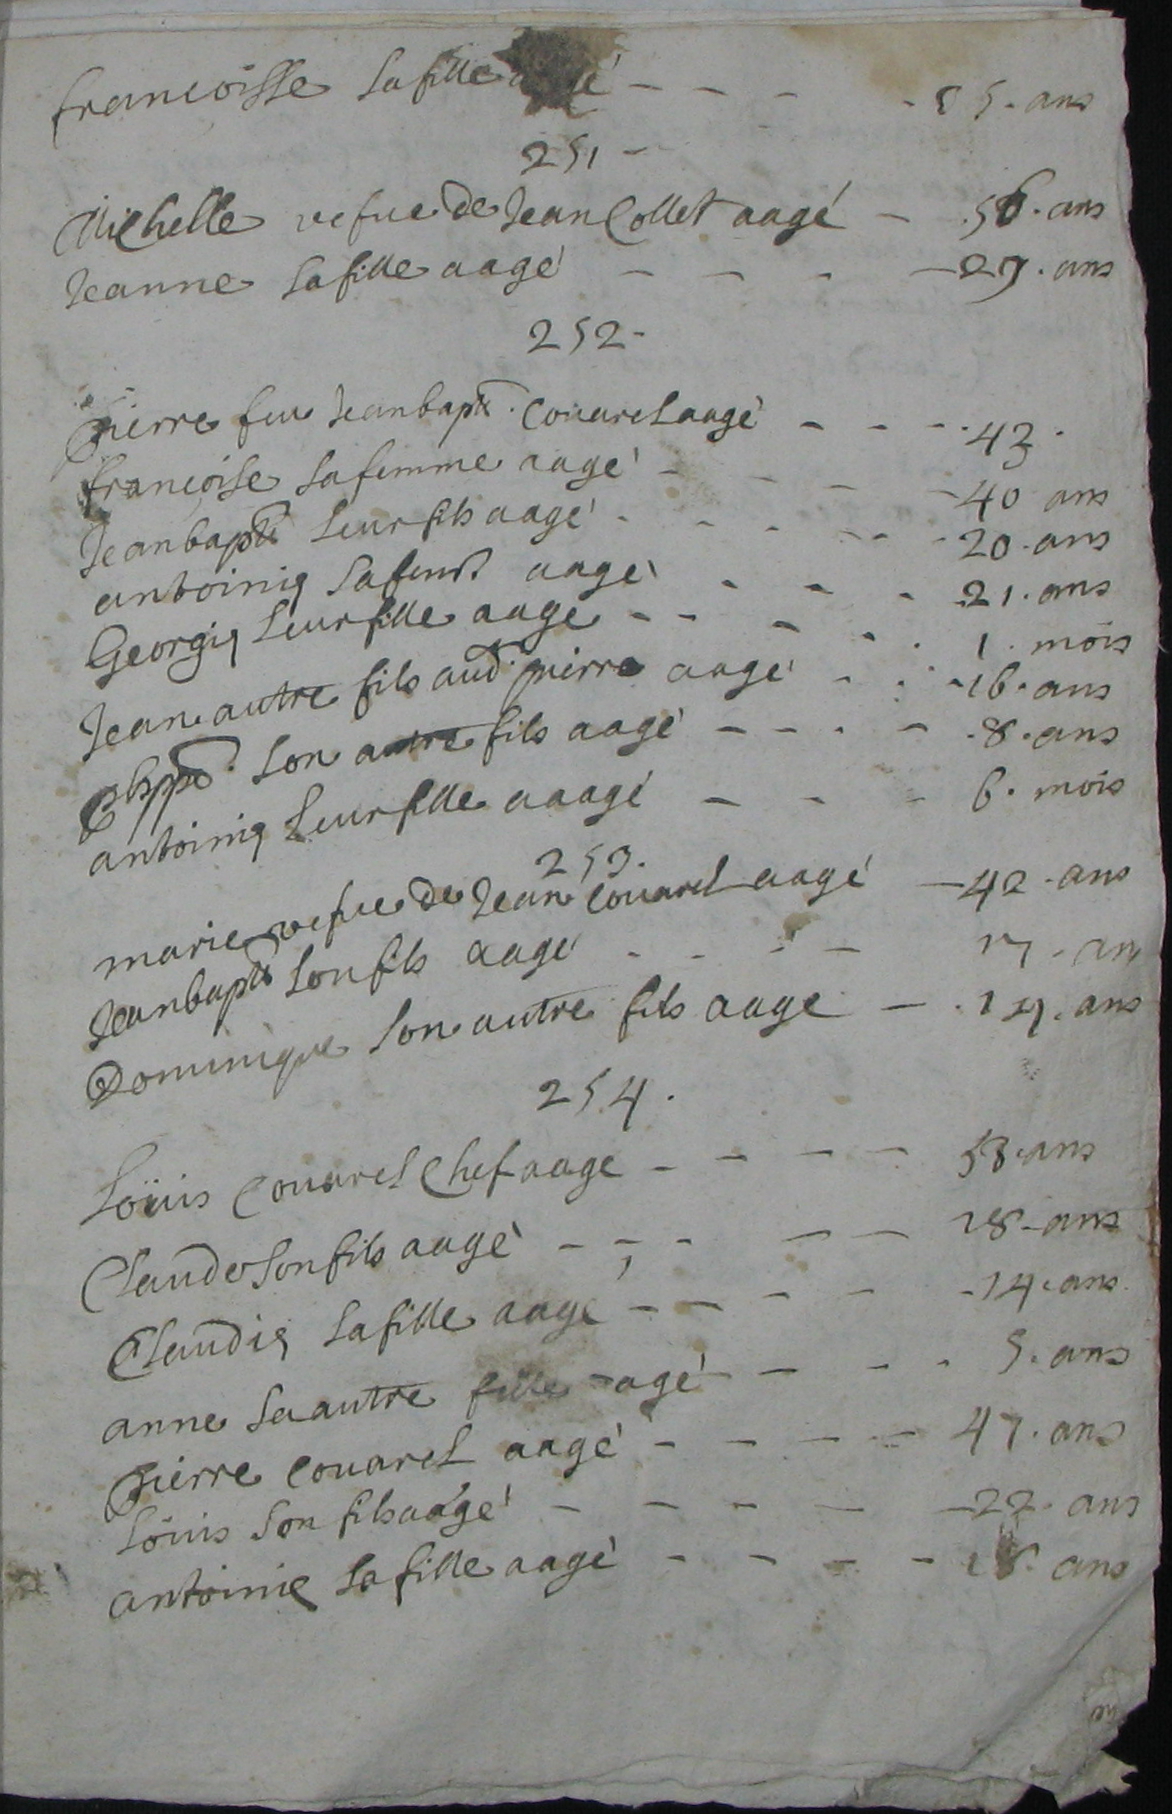 francoisse sa fille aagé - - - - 5. ans
251 -
Michelle vefue de Jean Collet aagé - 56. ans
Jeanne sa fille aagé - - - - 29. ans
252 -
Pierre feu Jeanbapte. Couarel aagé - - - - 43.
françoise sa femme aagé - - - - 40 ans
Jeanbapte leur fils aagé - - - - - 20. ans
antoinie sa feme aagé - - - 21. ans
Georgie leur fille aagé - - - - - 1. mois
Jean autre fils aud. pierre aagé - - - 16. ans
Phippe. son autre fils aagé - - - - 8. ans
antoinie leur fille aaagé - - - 6. mois
253.
marie vefue de Jean Couarel aagé - 42. ans
Jeanbapte son fils aagé - - - - 17. an
Dominique son autre fils aagé - . 14. ans
254.
Loüis Couarel Chef aagé - - - - 58. ans
Claude son fils aagé - - - - - 18. ans
Claudie sa fille aagé - - - - - 14. ans
anne sa autre fille aagé - - - 5. ans
Pierre Couarel aagé - - - - 47. ans
Loüis son fils aagé - - - - - 22. ans
antoinie sa fille aagé - - - - ans